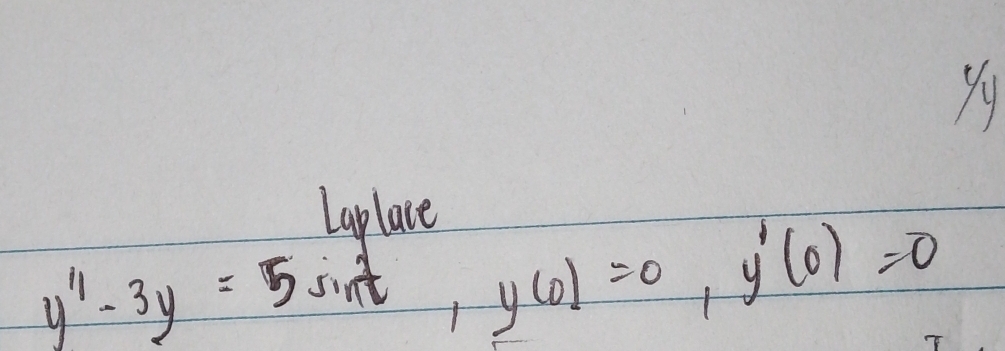 Laplace
y'' - 3y = 5 sint , y(0) =0 , y'(0) =0